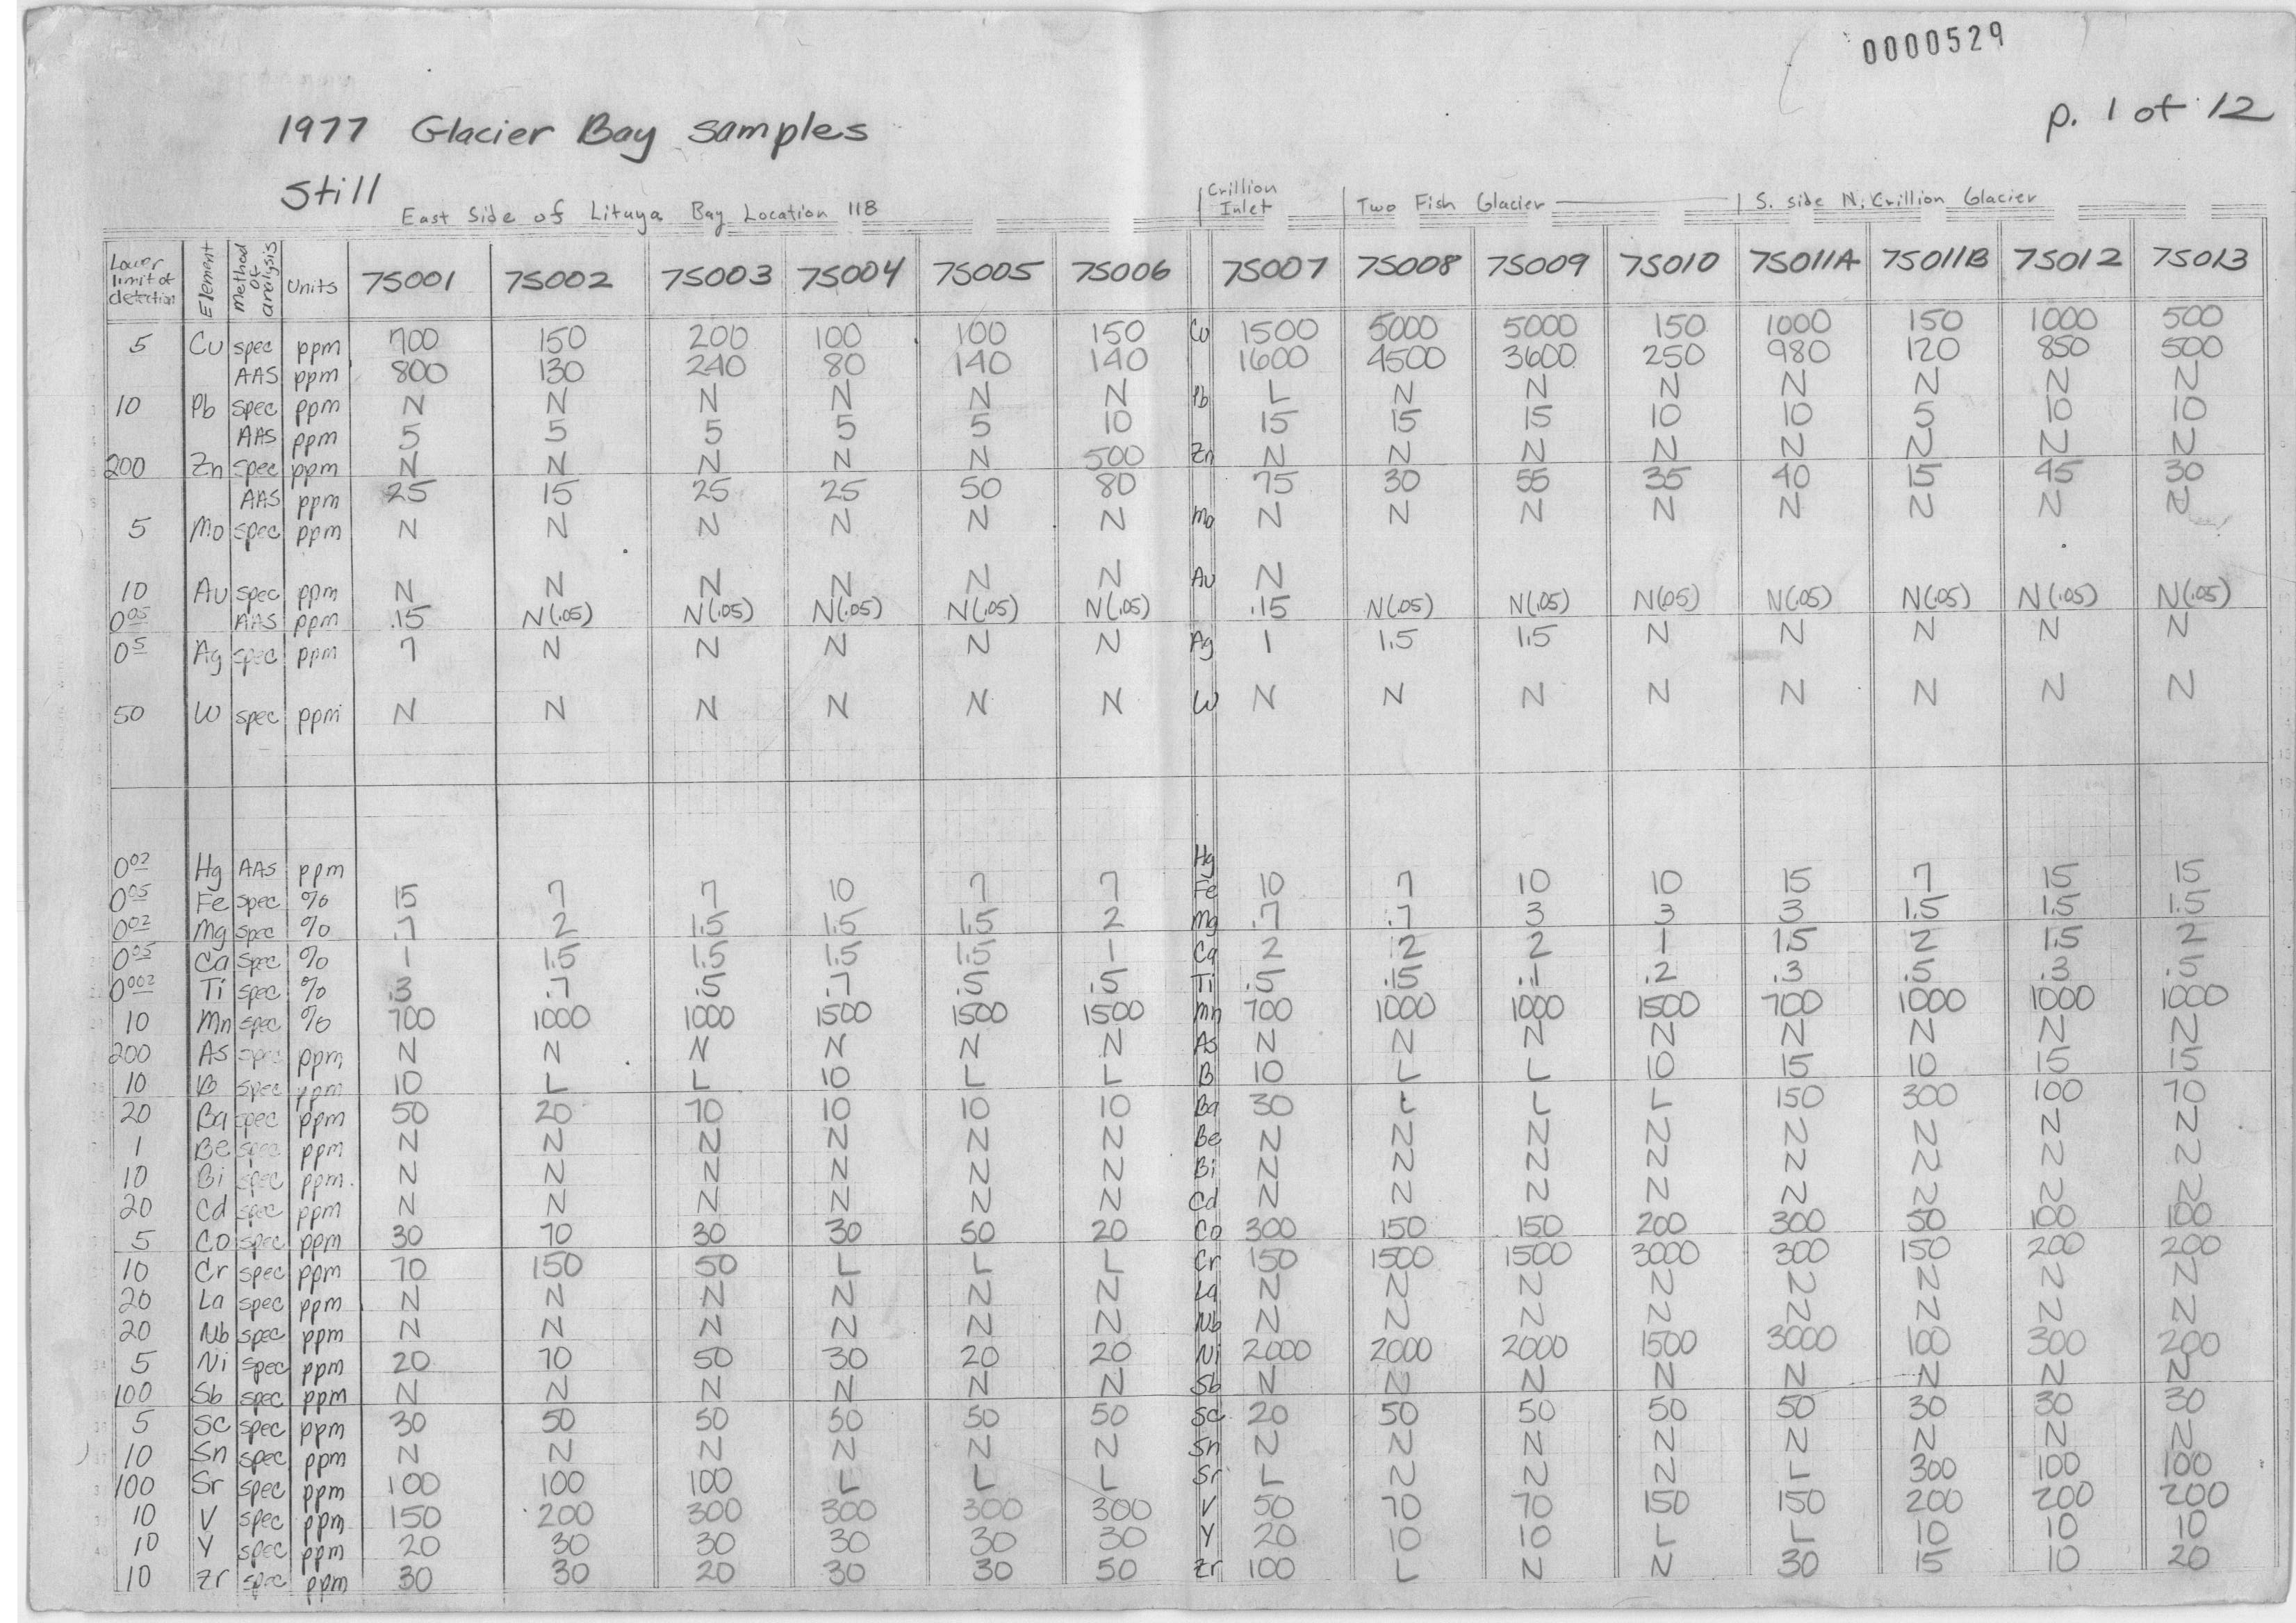 0000529
p. 1 of 12
1977 Glacier Bay samples
Still
East Side of Lituya Bay Location 118 | Crillion Inlet | Two Fish Glacier | S. side N. Crillion Glacier
Lower limit of detection Element Method of analysis Units 7S001 7S002 7S003 7S004 7S005 7S006 7S007 7S008 7S009 7S010 7S011A 7S011B 7S012 7S013
5 Cu spec ppm 700 150 200 100 100 150 Cu 1500 5000 5000 150 1000 150 1000 500
AAS ppm 800 130 240 80 140 140 1600 4500 3600 250 980 120 850 500
10 Pb spec ppm N N N N N N Pb L N N N N N N N
AAS ppm 5 5 5 5 5 10 15 15 15 10 10 5 10 10
200 Zn spec ppm N N N N N 500 Zn N N N N N N N N
AAS ppm 25 15 25 25 50 80 75 30 55 35 40 15 45 30
5 Mo spec ppm N N N N N N Mo N N N N N N N N
10 Au spec ppm N N N N N N Au N
0.05 AAS ppm .15 N(.05) N(.05) N(.05) N(.05) N(.05) .15 N(.05) N(.05) N(05) N(.05) N(.05) N(.05) N(.05)
0.5 Ag spec ppm 7 N N N N N Ag 1 1.5 1.5 N N N N N
50 W spec ppm N N N N N N W N N N N N N N N
0.02 Hg AAS ppm Hg
0.05 Fe spec % 15 7 7 10 7 7 Fe 10 7 10 10 15 7 15 15
0.02 Mg spec % .7 2 1.5 1.5 1.5 2 Mg .7 .7 3 3 3 1.5 1.5 1.5
0.05 Ca spec % 1 1.5 1.5 1.5 1.5 1 Ca 2 .2 2 1 1.5 2 1.5 2
0.002 Ti spec % .3 .7 .5 .7 .5 .5 Ti .5 .15 .1 .2 .3 .5 .3 .5
10 Mn spec % 700 1000 1000 1500 1500 1500 Mn 700 1000 1000 1500 700 1000 1000 1000
200 As spec ppm N N N N N N As N N N N N N N N
10 B spec ppm 10 L L 10 L L B 10 L L 10 15 10 15 15
20 Ba spec ppm 50 20 70 10 10 10 Ba 30 L L L 150 300 100 70
1 Be spec ppm N N N N N N Be N N N N N N N N
10 Bi spec ppm. N N N N N N Bi N N N N N N N N
20 Cd spec ppm N N N N N N Cd N N N N N N N N
5 Co spec ppm 30 70 30 30 50 20 Co 300 150 150 200 300 50 100 100
10 Cr spec ppm 70 150 50 L L L Cr 150 1500 1500 3000 300 150 200 200
20 La spec ppm N N N N N N La N N N N N N N N
20 Nb spec ppm N N N N N N Nb N N N N N N N N
5 Ni spec ppm 20 70 50 30 20 20 Ni 2000 2000 2000 1500 3000 100 300 200
100 Sb spec ppm N N N N N N Sb N N N N N N N N
5 Sc spec ppm 30 50 50 50 50 50 Sc 20 50 50 50 50 30 30 30
10 Sn spec ppm N N N N N N Sn N N N N N N N N
100 Sr spec ppm 100 100 100 L L L Sr L N N N L 300 100 100
10 V spec ppm 150 200 300 300 300 300 V 50 70 70 150 150 200 200 200
10 Y spec ppm 20 30 30 30 30 30 Y 20 10 10 L L 10 10 10
10 Zr spec ppm 30 30 20 30 30 50 Zr 100 L N N 30 15 10 20